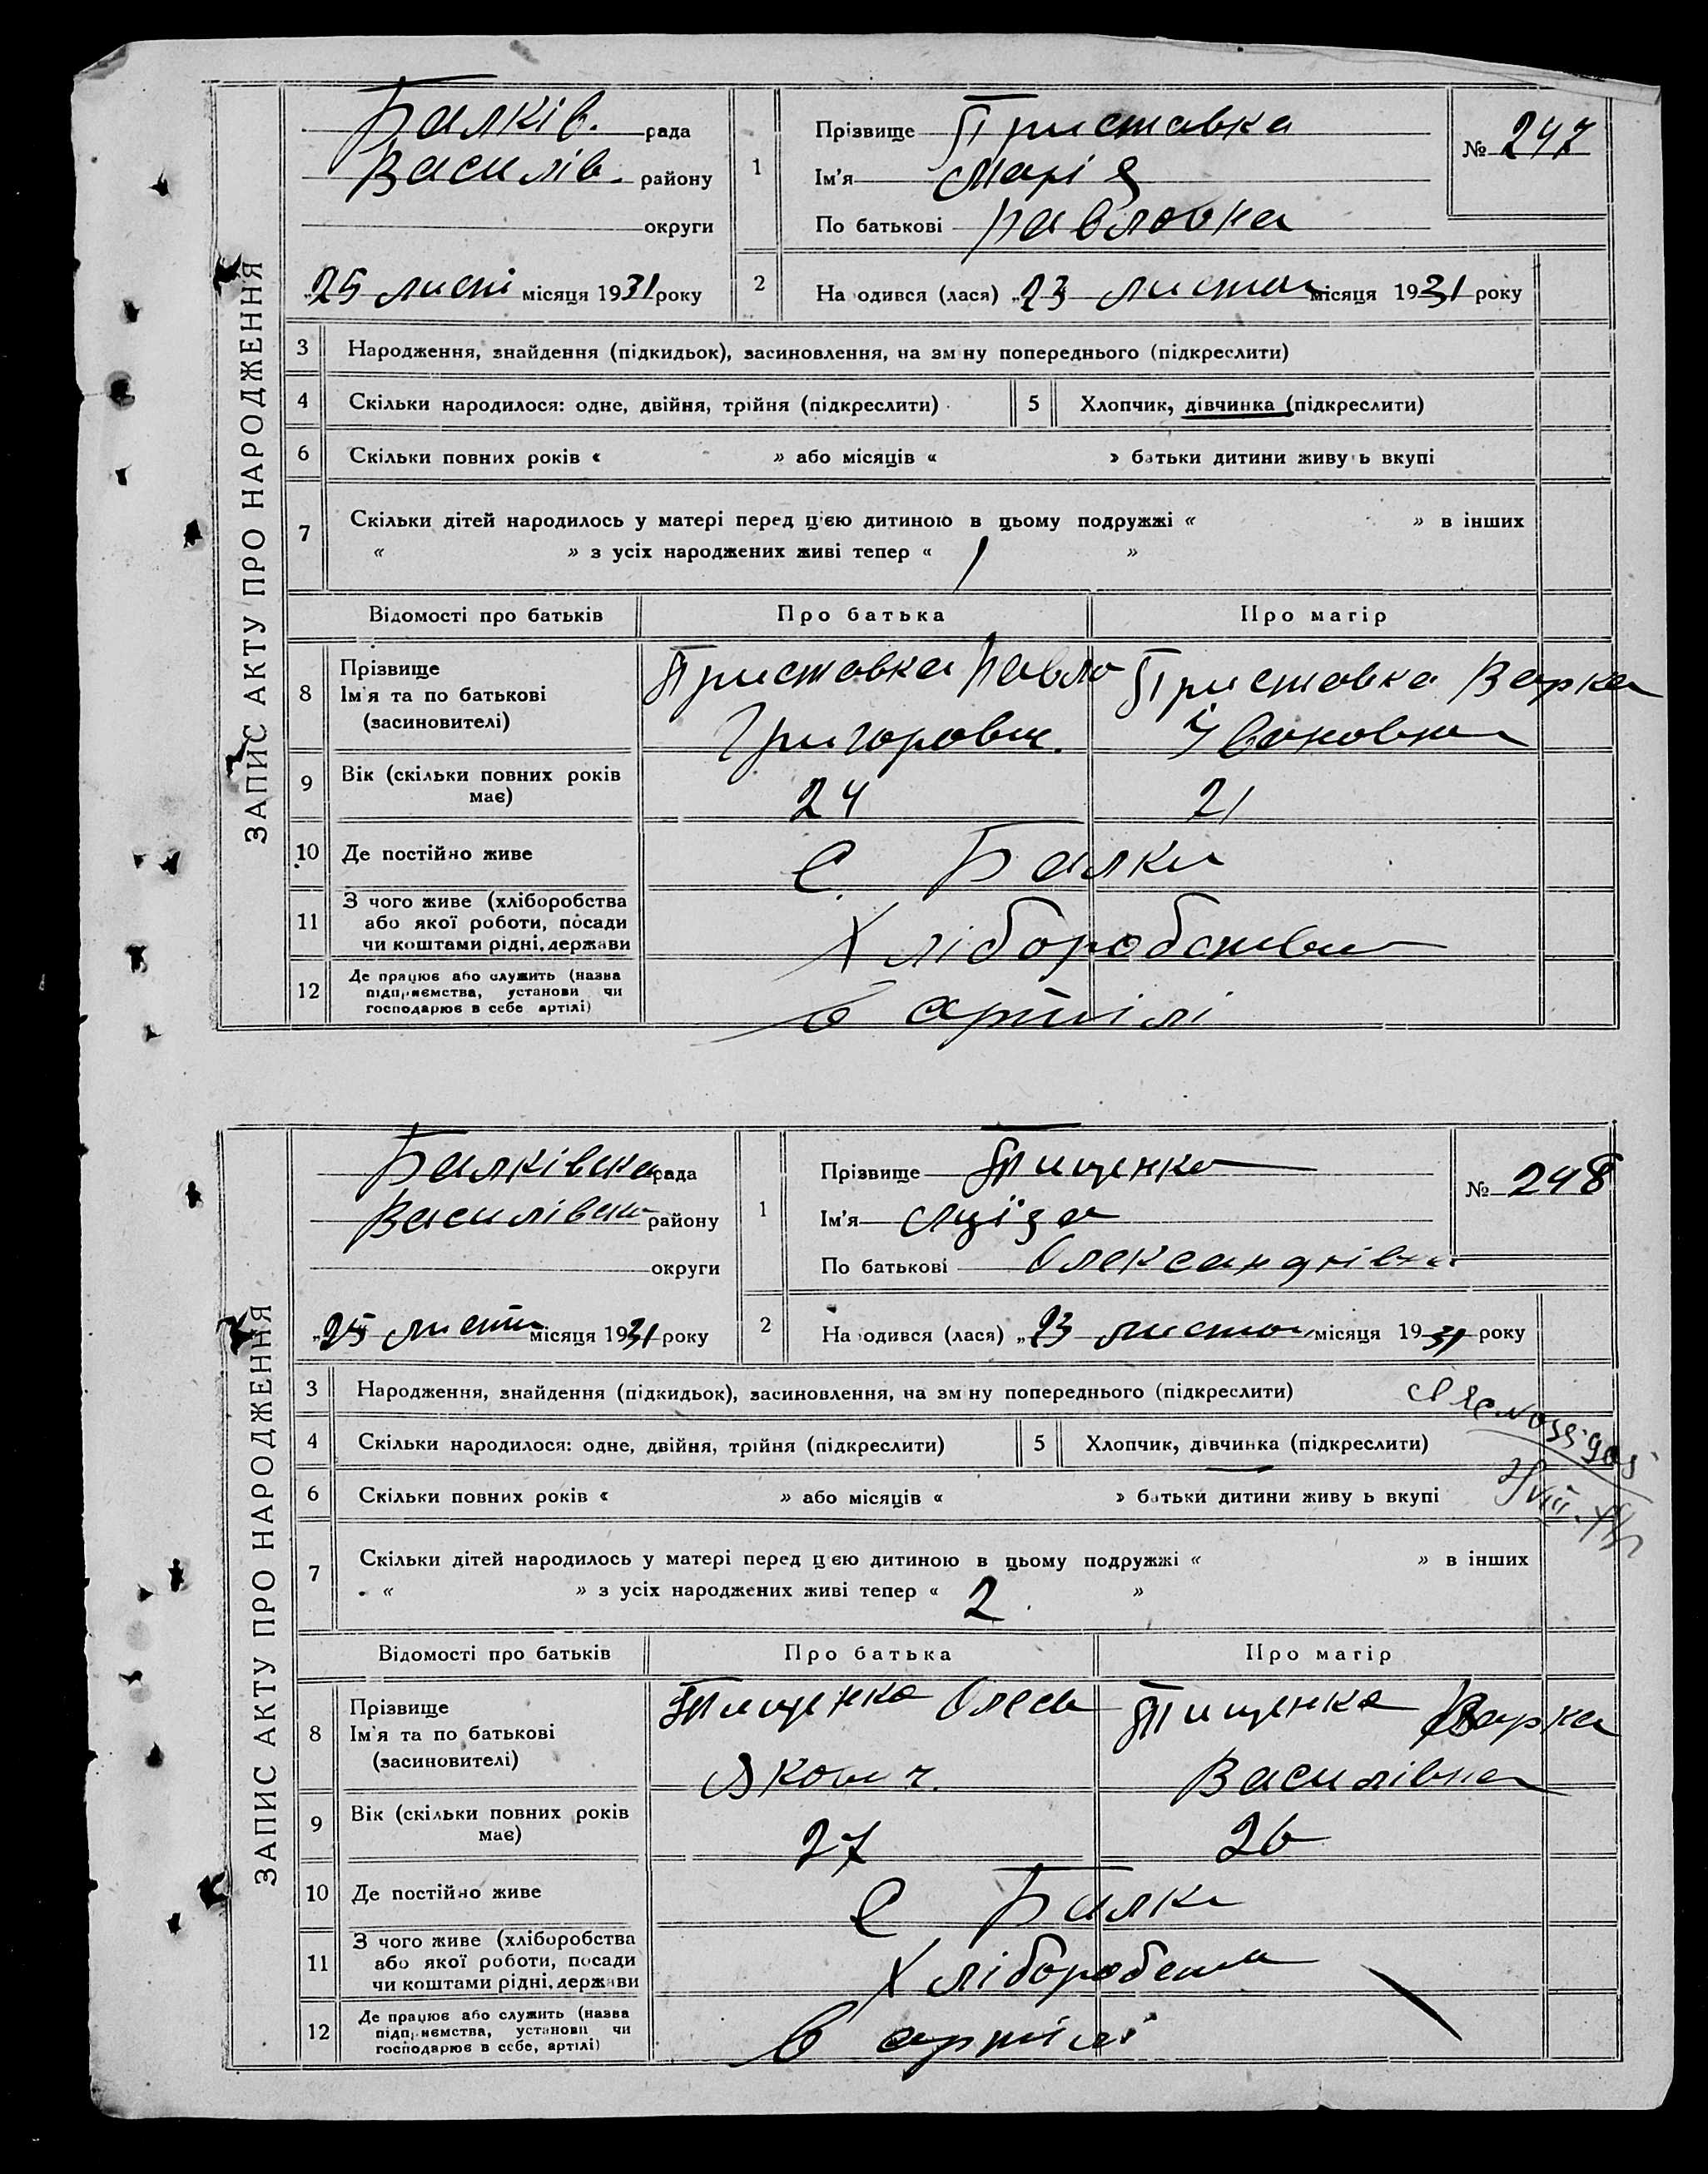 ЗАПИС АКТУ ПРО НАРОДЖЕННЯ
Балків. рада
Василів. району
округи
„25 листі місяця 1931 року
1
Прізвище Приставка
Ім'я Марія
По батькові Павловна
№ 247
2
На одився (лася) „23 листоп місяця 1931 року
3 Народження, знайдення (підкидьок), засиновлення, на зм ну попереднього (підкреслити)
4 Скільки народилося: одне, двійня, трійня (підкреслити) 5 Хлопчик, дівчинка (підкреслити)
6 Скільки повних років « » або місяців « » батьки дитини живу ь вкупі
7 Скільки дітей народилось у матері перед цією дитиною в цьому подружжі « » в інших
« » з усіх народжених живі тепер « 1 »
Відомості про батьків Про батька Про матір
8 Прізвище
Ім'я та по батькові
(засиновителі)
Приставка Павло
Григорович.
Приставка Варка
Івановна
9 Вік (скільки повних років
має)
24 21
10 Де постійно живе с. Балки
11 З чого живе (хліборобства
або якої роботи, посади
чи коштами рідні, держави
Хліборобства
12 Де працює або служить (назва
підприємства, установи чи
господарює в себе артілі)
в артілі
ЗАПИС АКТУ ПРО НАРОДЖЕННЯ
Балківська рада
Василівськ району
округи
„25 листоп місяця 1931 року
1
Прізвище Тищенко
Ім'я
По батькові Олександрівна
№ 248
2
На одився (лася) „23 листоп місяця 1931 року
3 Народження, знайдення (підкидьок), засиновлення, на зм ну попереднього (підкреслити)
4 Скільки народилося: одне, двійня, трійня (підкреслити) 5 Хлопчик, дівчинка (підкреслити)
6 Скільки повних років « » або місяців « » батьки дитини живу ь вкупі
7 Скільки дітей народилось у матері перед цією дитиною в цьому подружжі « » в інших
« » з усіх народжених живі тепер « 2 »
Відомості про батьків Про батька Про матір
8 Прізвище
Ім'я та по батькові
(засиновителі)
Тищенко Олесь
Якович.
Тищенка Варка
Василівна
9 Вік (скільки повних років
має)
27 26
10 Де постійно живе с Балки
11 З чого живе (хліборобства
або якої роботи, посади
чи коштами рідні, держави
Хліборобства
12 Де працює або служить (назва
підприємства, установи чи
господарює в себе, артілі)
в артілі